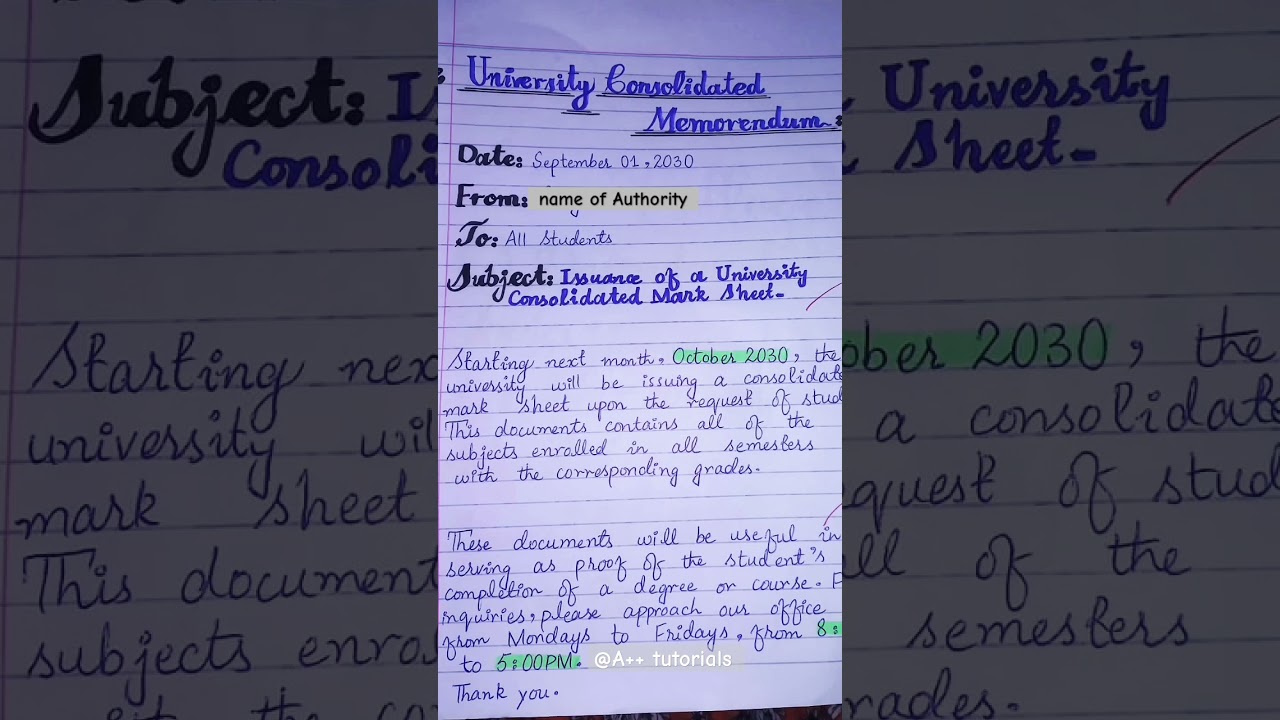 University Consolidated
Memorendum:
Date: September 01, 2030
From: name of Authority
To: All Students
Subject: Issuance of a University
Consolidated Mark Sheet-
Starting next month, October 2030, the
university will be issuing a consolidate
mark sheet upon the request of stud
This documents contains all of the
subjects enrolled in all semesters
with the corresponding grades.
These documents will be useful in
serving as proof of the student's
completion of a degree or course. F
inquiries, please approach our office
from Mondays to Fridays, from 8:
to 5:00PM. @A++ tutorials
Thank you.